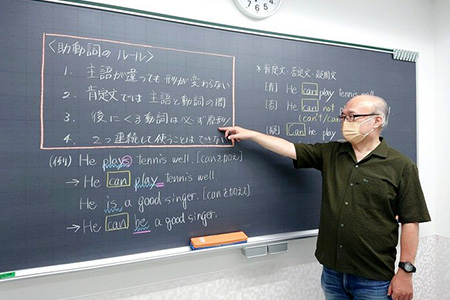 〈助動詞の ルール〉
1. 主語が違っても 形が変わらない
2. 肯定文では 主語と動詞の間
3. 後にくる動詞は必ず原形
4. 2つ連続して使うことはできない
(例) He plays tennis well. [canを加えて]
→ He can play tennis well
He is a good singer. [canを加えて]
→ He can be a good singer.
* 肯定文・否定文・疑問文
[肯] He can play tennis well
[否] He can not p
(can't/can
Can he play
7 6 5